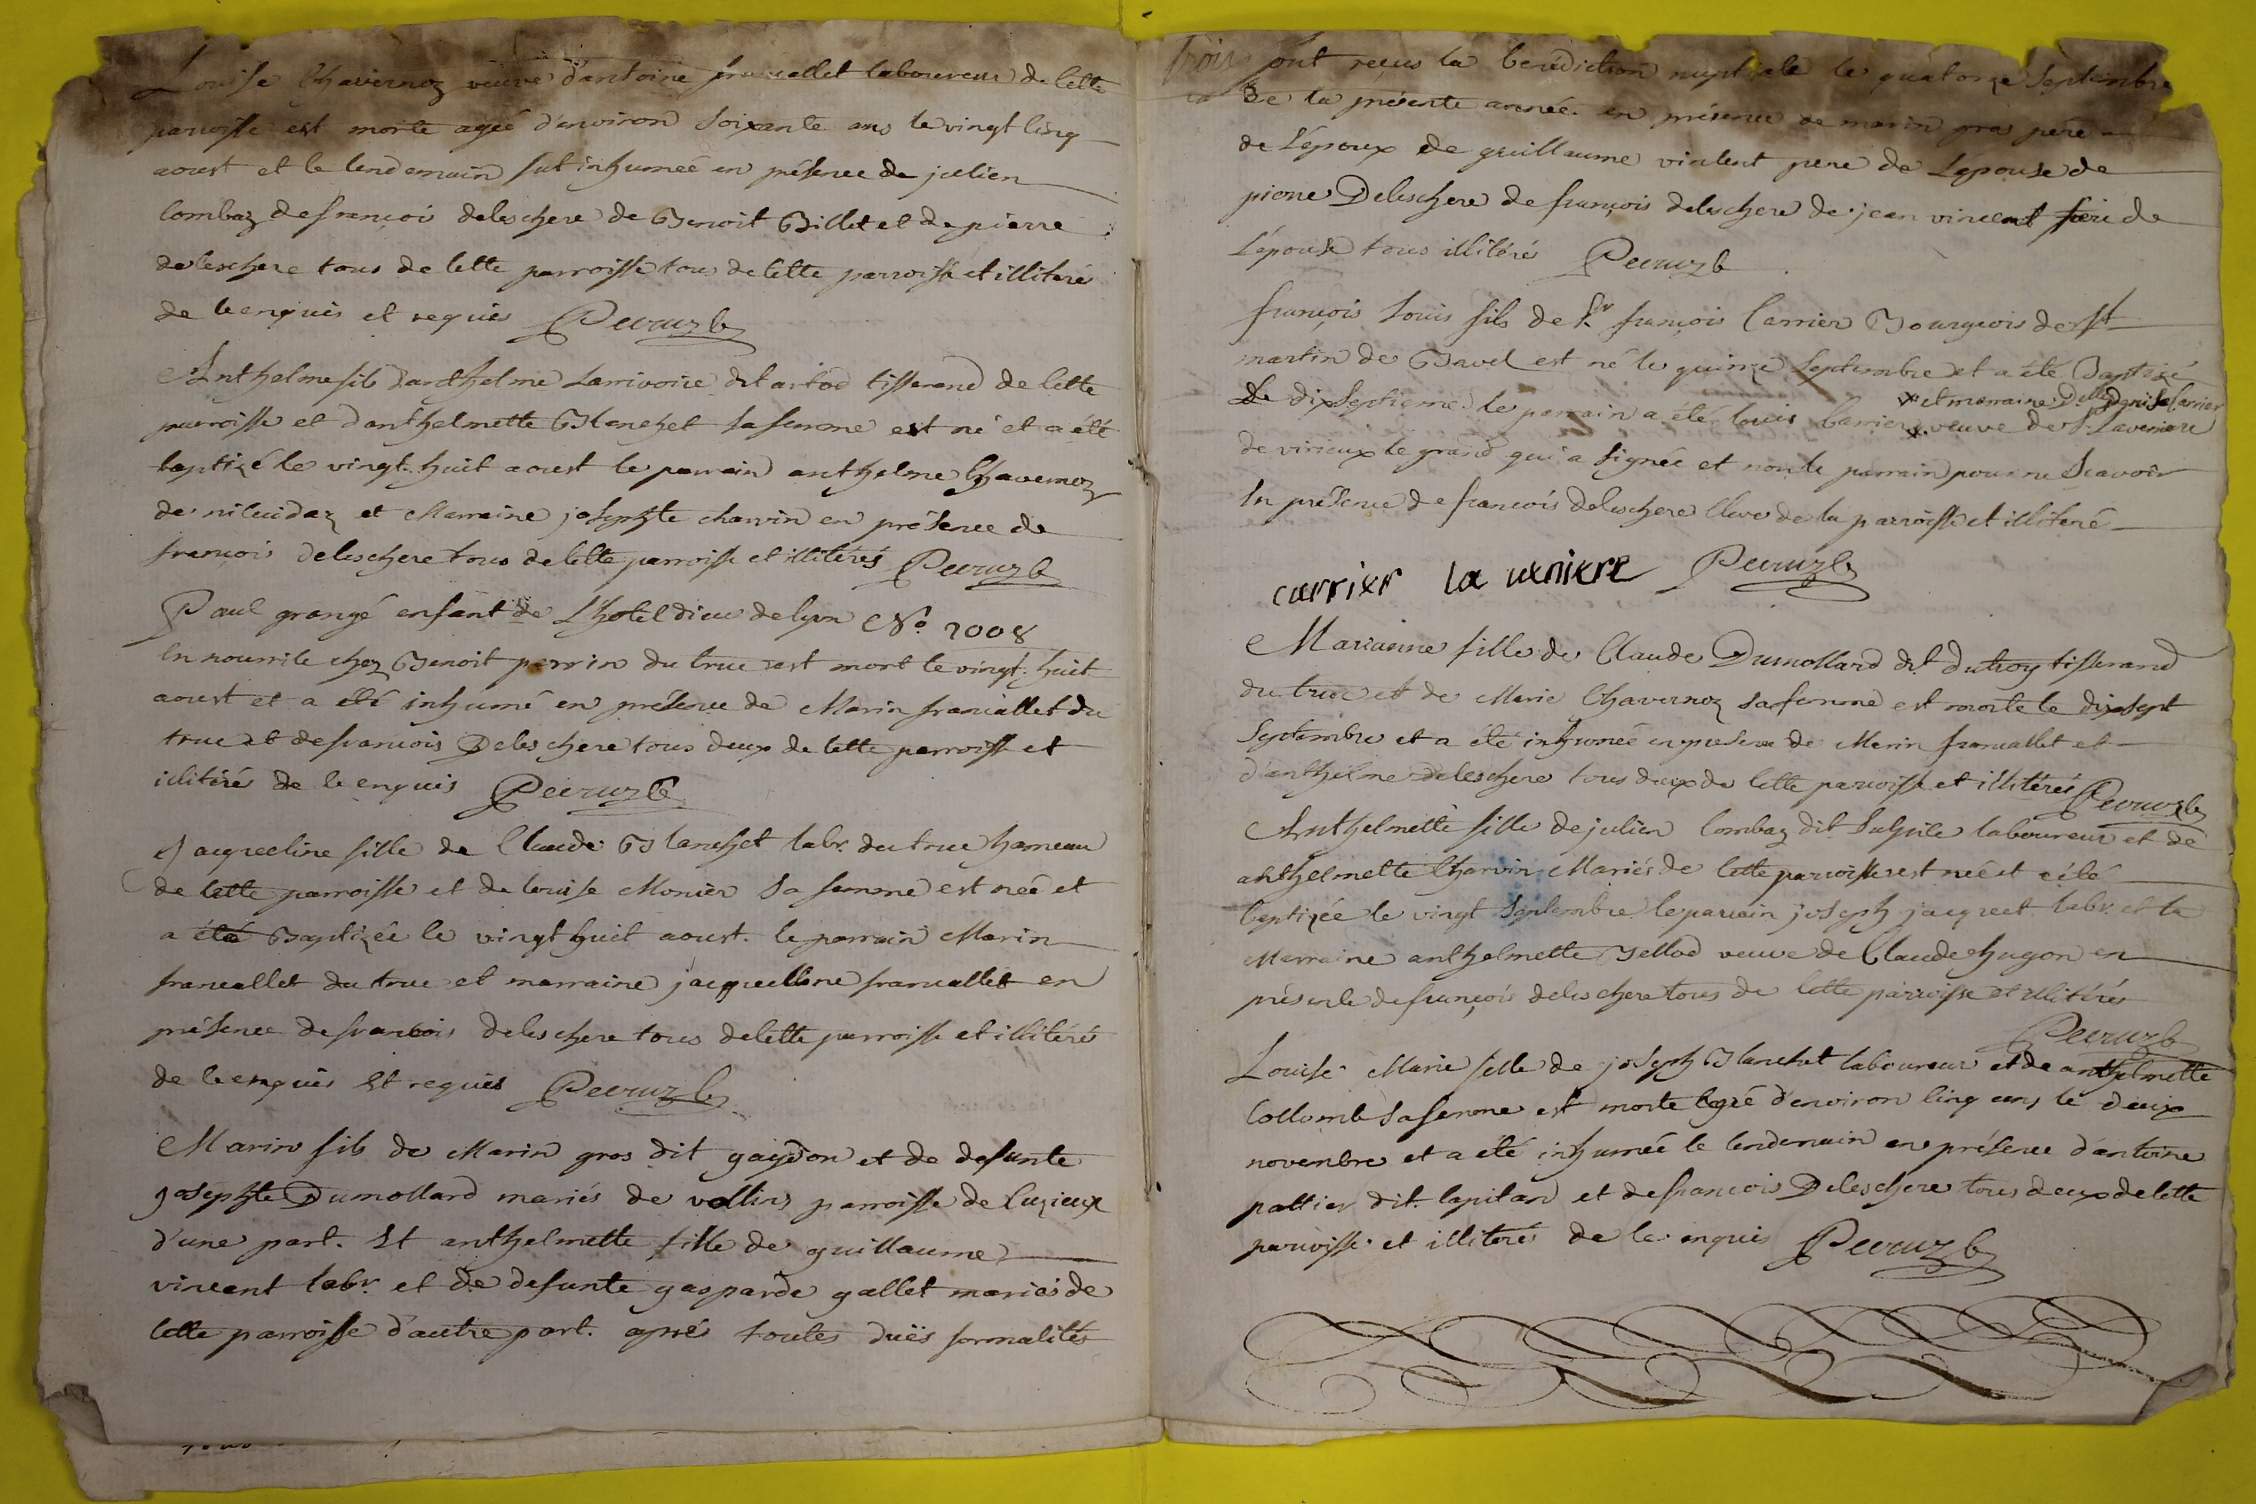 Louise Chavernoz veuve d'antoine francallet laboureur de cette
parroisse est morte ageé d'environ soixante ans le vingt cinq
aoust et le lendemain fut inhumeé en présence de julien
Combaz de françois deleschere de Benoit Billet et de pierre
deleschere tous de cette parroisse tous de cette parroisse et illiterés
de ce enquis et requis Peeruzle
Anthelme fils d'anthelme Larrivoire dit artod tisserand de cette
parroisse et d'anthelmette Blanchet sa femme est né et a été
baptizé le vingt huit aoust le parrain anthelme Chavernoz
de et Marraine josephte charvin en présence de
françois deleschere tous de cette parroisse et illitérés Peeruzle
Paul grangé enfant de L'hotel dieu de lyon No. 2008
en nourrice chez Benoit perrin du truc est mort le vingt huit
aoust et a été inhumé en présence de Marin francallet du
truc et de francois Deleschere tous deux de cette parroisse et
illitérés de ce enquis Peeruzle
Jacqueline fille de Claude Blanchet labr. du truc hameau
de cette parroisse et de louise Monier sa femme est neé et
a été Baptizée le vingt huit aoust. le parrain Marin
francallet du truc et marraine jacqueline francallet en
présence de francois deleschere tous de cette parroisse et illitérés
de ce enquis et requis Peeruzle
Marin fils de Marin gros dit gaydon et de defunte
josephte Dumollard mariés de vollins parroisse de Cuzieux
d'une part. Et anthelmette fille de guillaume
vincent labr. et de defunte gasparde gallet mariés de
cette parroisse d'autre part. après toutes duës formalités
trois ont reçus la benédiction nuptiale le quatorze septembre
de la présente année en présence de marin gros père
de L'époux de guillaume vincent pere de L'epouse de
pierre Deleschere de françois deleschere de jean vincent frere de
L'épouse tous illitérés Peeruzle
françois Louis fils de Sr. françois Carrier Bourgeois de St
martin de Bavel est né le quinze septembre et a été Baptizé
x et marraine Delle Denise Carrier
Le dixseptieme. le parrain a été louis Carrier x veuve de Sr. Laveniere
de virieux le grand qui a signée et non le parrain pour ne scavoir
En présence de francois deleschere Clerc de la parroisse et illiteré
carrier la veniere Peeruzle
Marianne fille de Claude Dumollard dit dutroy tisserand
du truc et de Marie Chavernoz sa femme est morte le dixsept
Septembre et a été inhumée en présence de Marin francallet et
d'anthelme deleschere tous deux de cette parroisse et illitérés Peeruzle
Anthelmette fille de julien Combaz dit Sulpice laboureur et de
anthelmette Charvin Mariés de cette parroisse est née et a été
baptizée le vingt septembre le parrain joseph jacquet labr. et la
Marraine anthelmette Bellod veuve de Claude hugon en
présence de françois deleschere tous de cette parroisse et illitérés
Peeruzle
Louise Marie fille de joseph Blanchet laboureur et de anthelmette
Collomb sa femme est morte ageé d'environ cinq ans le deux
novembre et a été inhumée le lendemain en présence d'antoine
pattier dit. Capitan et de francois Deleschere tous deux de cette
parroisse et illiterés de ce enquis Peeruzle